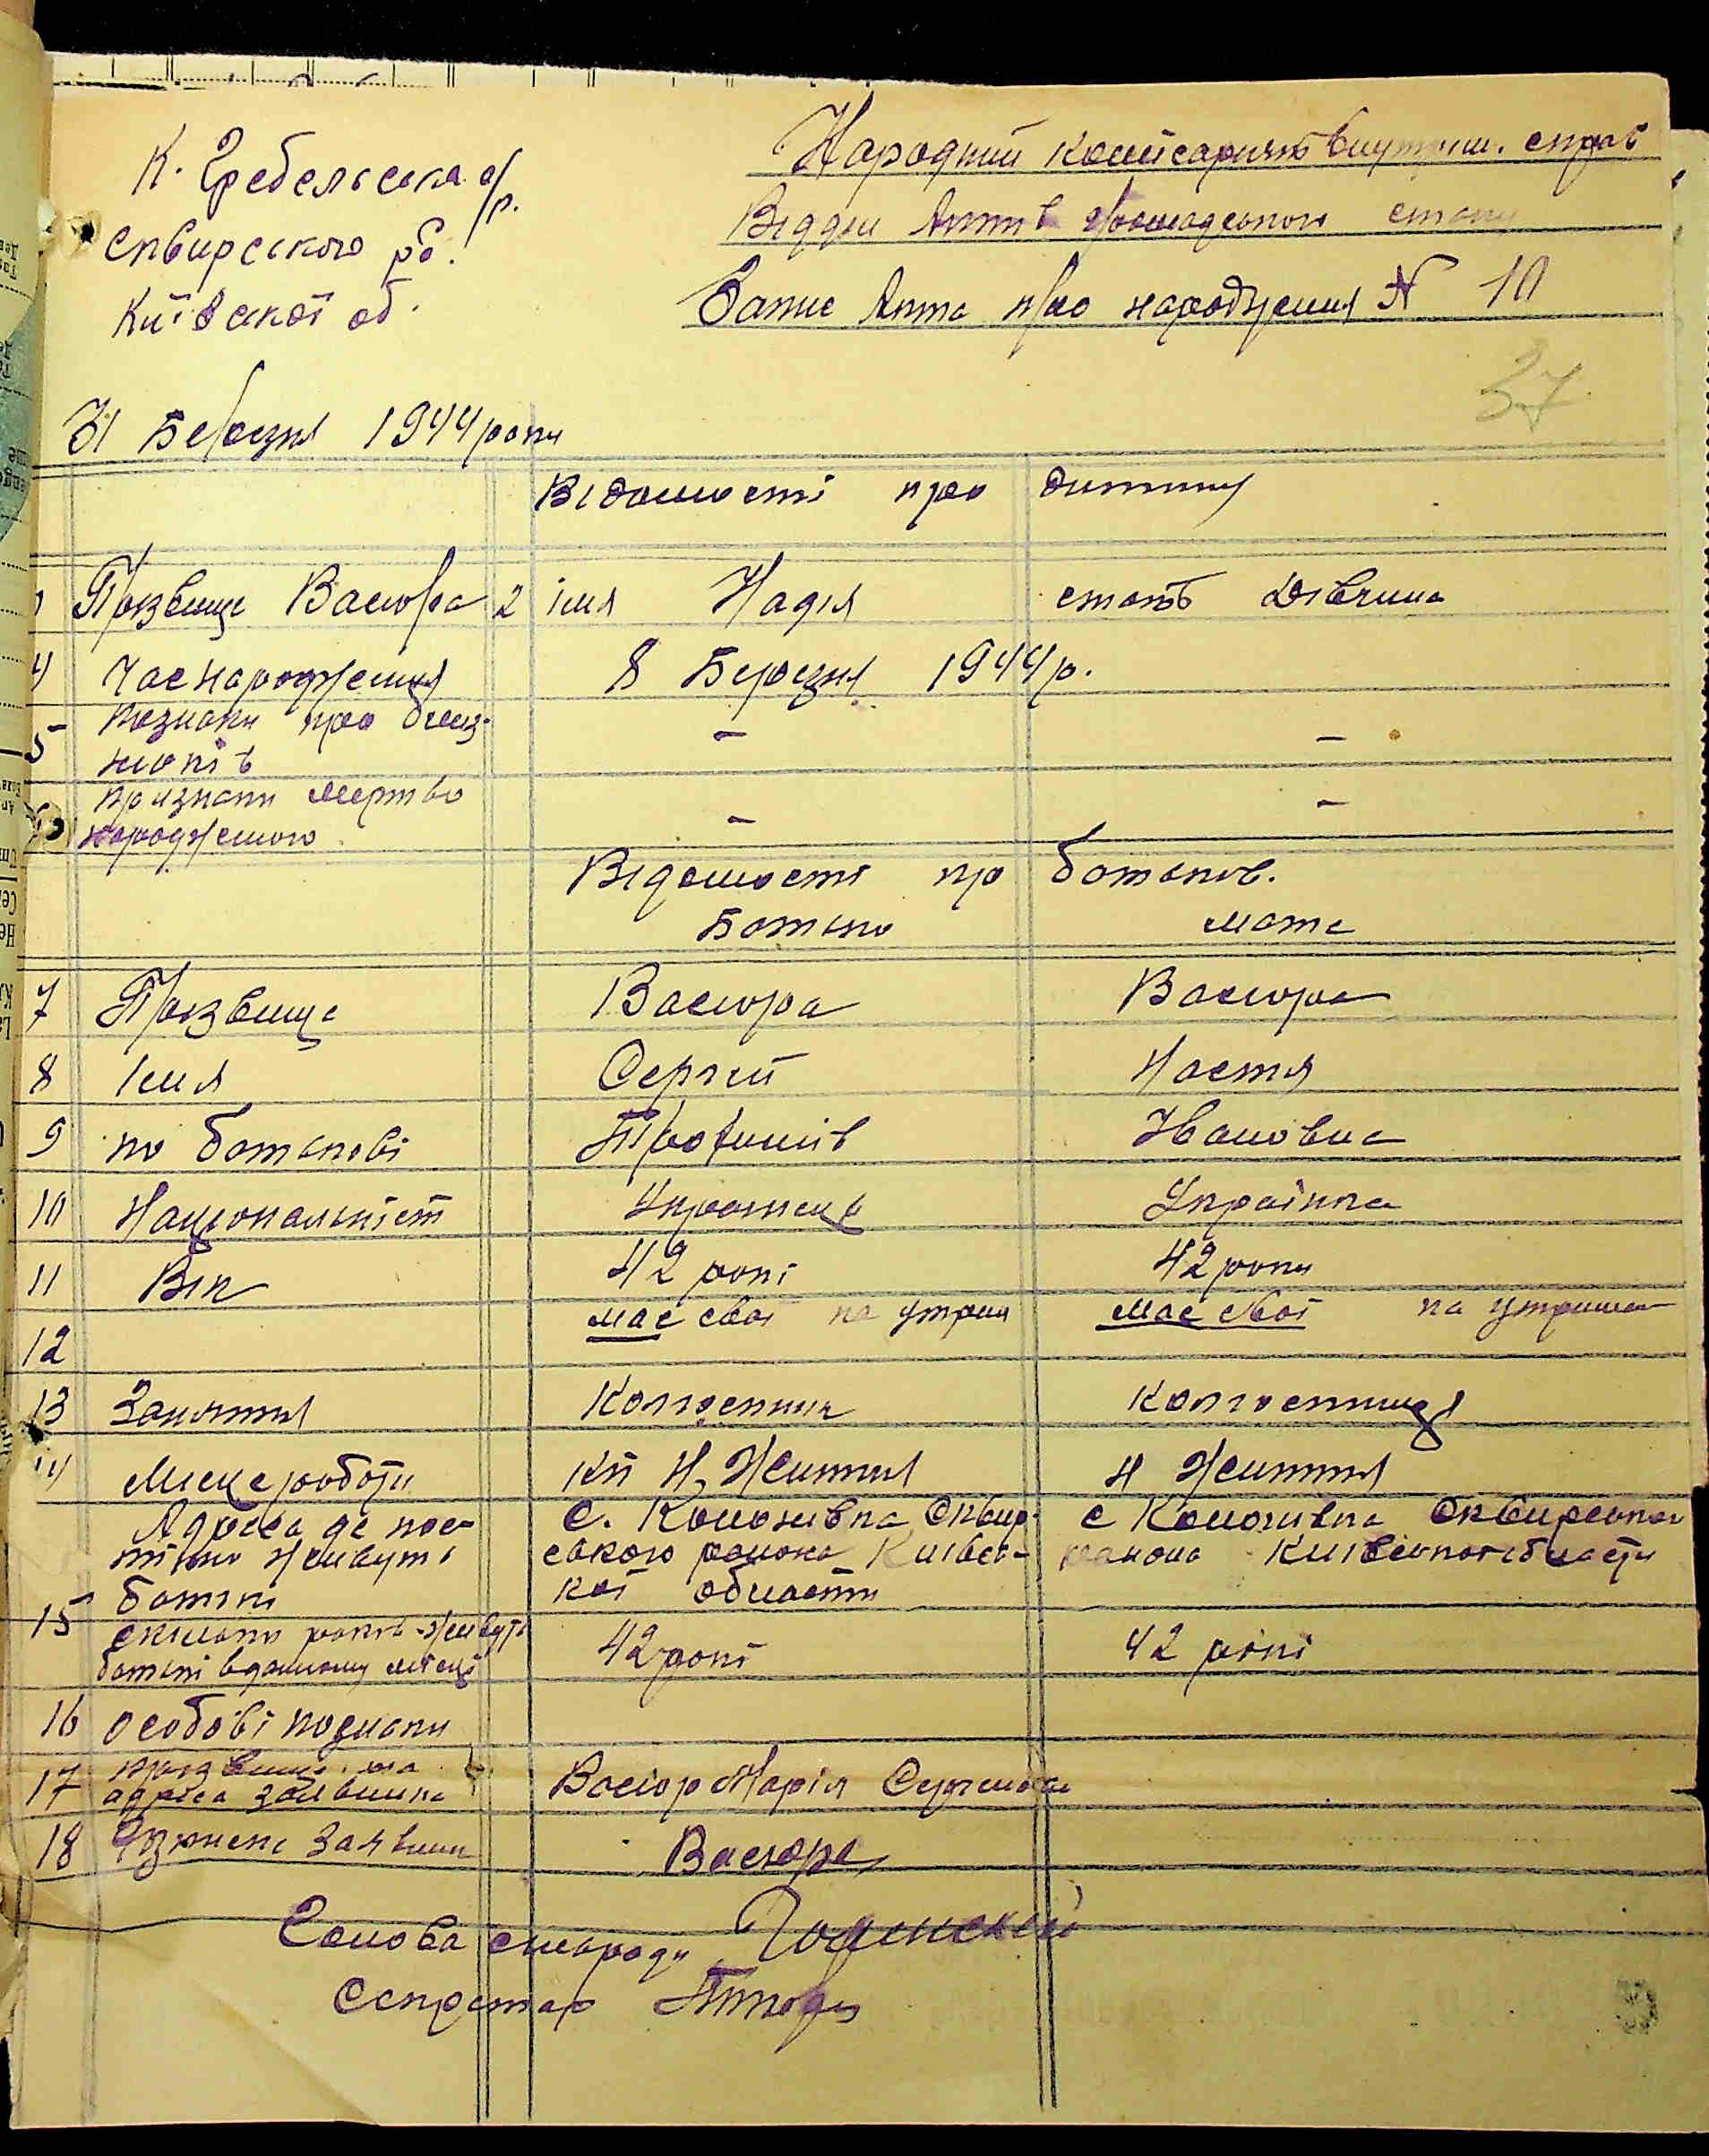 К. Гребельська с/р.
Сквирського р.
Київскої об.
Народний комісаріят внутріш. справ
Відділ Актів громадського стану
Запис Акта про народження № 10
37
31 Березня 1944 року
Відомості про дитину
1 Прізвище Васюра 2 імя Надія стать Дівчина
4 Час народження 8 Березня 1944 р.
5 познаки про близ-
нюків - -
6 признаки мертво
народженого - -
Відомості про батьків.
Батько мате
7 Прізвище Васюра Васюра
8 Імя Сергій Настя
9 по батькові Трофимів Івановна
10 Національніст Українець Українка
11 Вік 42 рокі 42 роки
12 має свої на утрим має свої на утриман
13 Заняття Колгоспник Колгоспниця
14 Місце роботи кп Н. Життя Н Життя
Адреса де пос- С. Коможівка Сквир- с Коможівка Сквирського
тійно живуть ського района Київсь- района Київської области
15 батьки кої области
скільки років живуть
батькі в даному місці 42 рокі 42 рокі
16 особові познаки
17 прізвище та
адреса заявника Васюр Марія Сергіївна
18 Підпис заявник Васюра
Голова сільради
Секретар